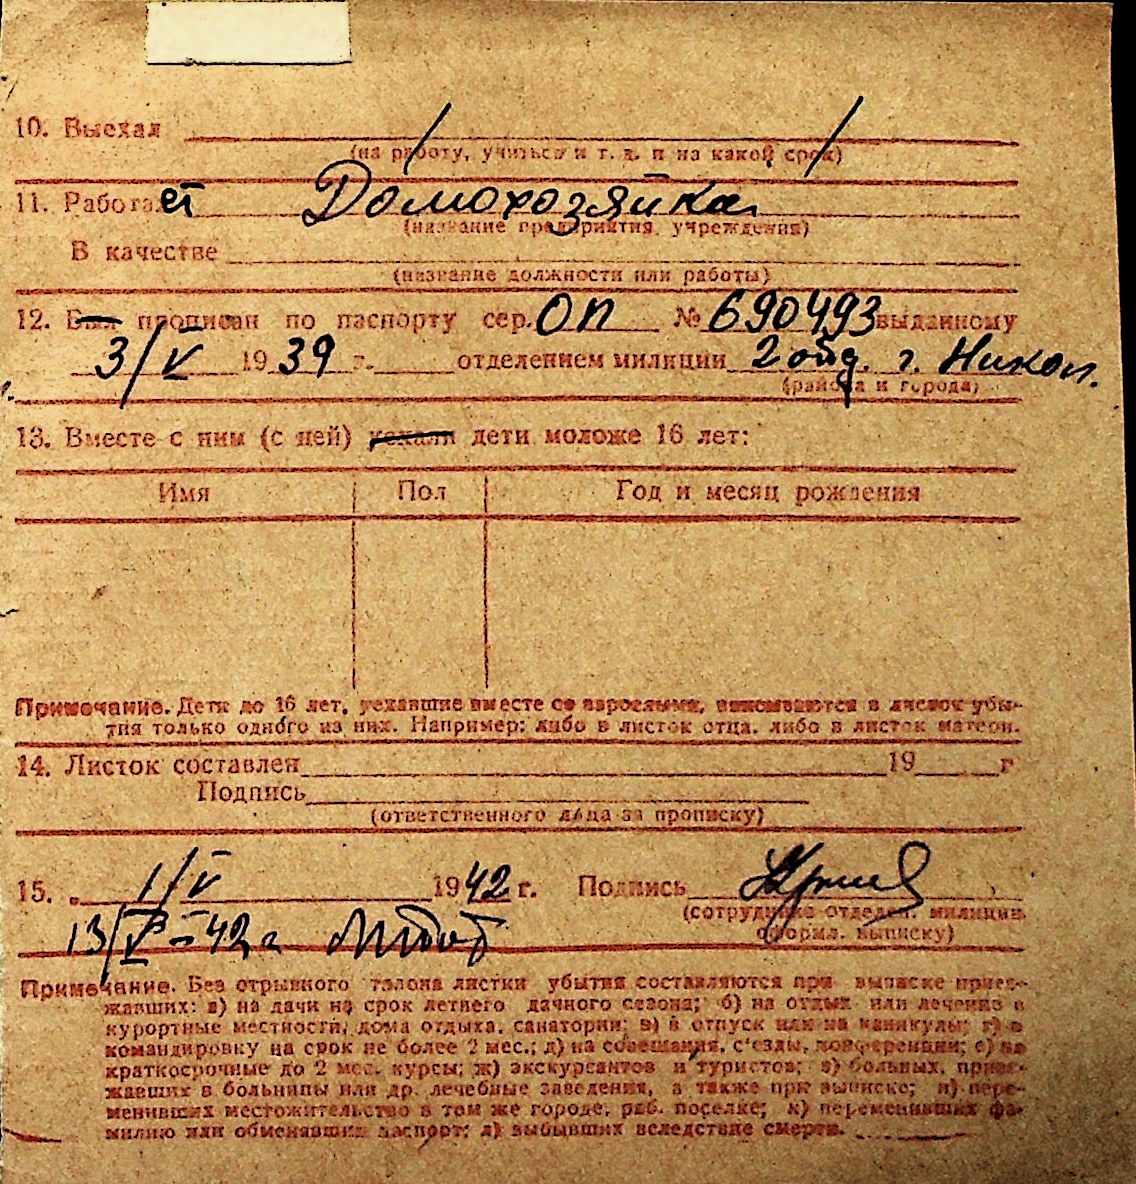 10. Выехал
(на работу, учиться и т. д. и на какой срок)
11. Работает Домохозяйка
(название предприятия, учреждения)
В качестве
(название должности или работы)
12. Был прописан по паспорту сер. ОП № 690493 выданному
3/V 1939 г. отделением милиции 2 отд. г. Никол.
(района и города)
13. Вместе с ним (с ней) уехали дети моложе 16 лет:
Имя Пол Год и месяц рождения
Примечание. Дети до 16 лет, уехавшие вместе со взрослыми, вписываются в листок убы-
тия только одного из них. Например: либо в листок отца, либо в листок матери.
14. Листок составлен 19 г
Подпись
(ответственного лица за прописку)
15. 1/V 1942 г. Подпись
(сотрудника отделен. милиции,
оформл. выписку)
13/V - 42 г
Примечание. Без отрывного талона листки убытия составляются при выписке приез-
жавших: а) на дачи на срок летнего дачного сезона; б) на отдых или лечение в
курортные местности, дома отдыха, санатории; в) в отпуск или на каникулы; г) в
командировку на срок не более 2 мес.; д) на совещания, с'езды, конференции; е) на
краткосрочные до 2 мес. курсы; ж) экскурсантов и туристов; з) больных, приез-
жавших в больницы или др. лечебные заведения, а также при выписке; и) пере-
менивших местожительство в том же городе, раб. поселке; к) переменивших фа-
милию или обменявших паспорт; л) выбывших вследствие смерти.